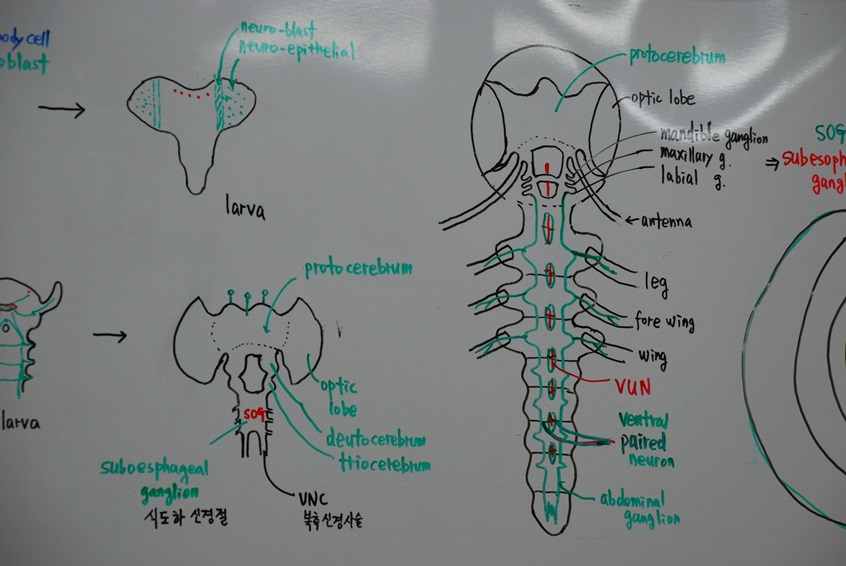 ody cell
oblast
neuro-blast
neuro-epithelial
larva
larva
protocerebrum
optic
lobe
SOG
deutocerebrum
triocerebrum
suboesphageal
ganglion
식도하 신경절
VNC
protocerebrum
optic lobe
mandible ganglion
maxillary g.
labial g.
SOG
subesoph
gangl
antenna
leg
fore wing
wing
VUN
ventral
paired
neuron
abdominal
ganglion